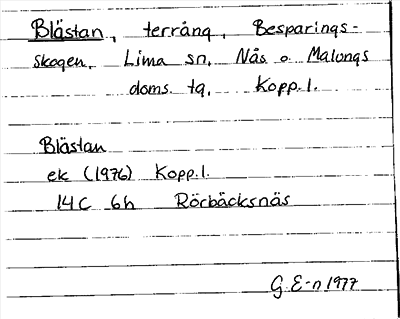 Blästan, terräng, Besparings-
skogen, Lima sn, Nås o Malungs
doms. tg, Kopp. l.
Blästan
ek (1976) Kopp. l.
14C 6h Rörbäcksnäs
G. E-n 1977